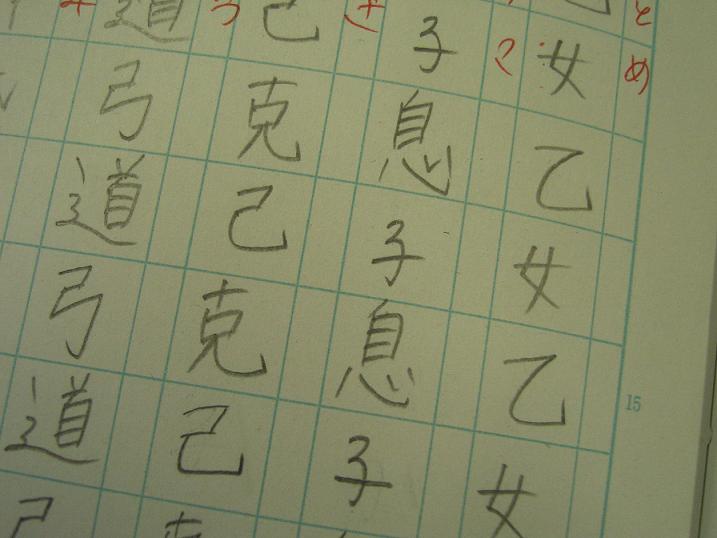 とめ
乙女乙女乙女
く
子息子息子
き
己克己克己克
う
道弓道弓道弓